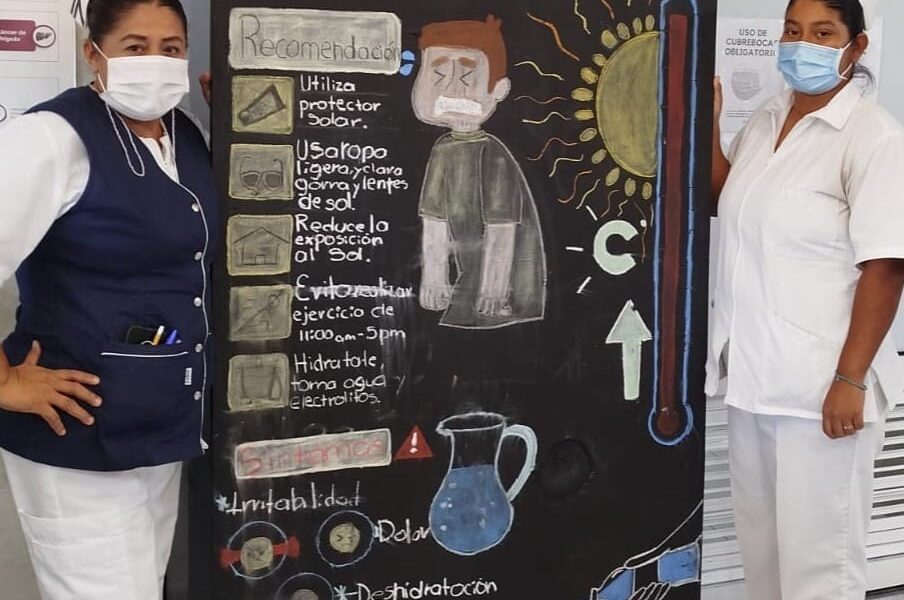 Cáncer de
hígado
USO DE
CUBREBOCAS
OBLIGATORIO
Recomendación
Utiliza
protector
solar.
Usaropa
ligera, y clara
gorra y lentes
de sol.
Reduce la
exposición
al Sol.
Evita realizar
ejercicio de
11:00am-5pm
Hidratate,
toma agua y
electrolitos.
C
Sintomas
*Irritabilidad
*Dolor
*Deshidratación